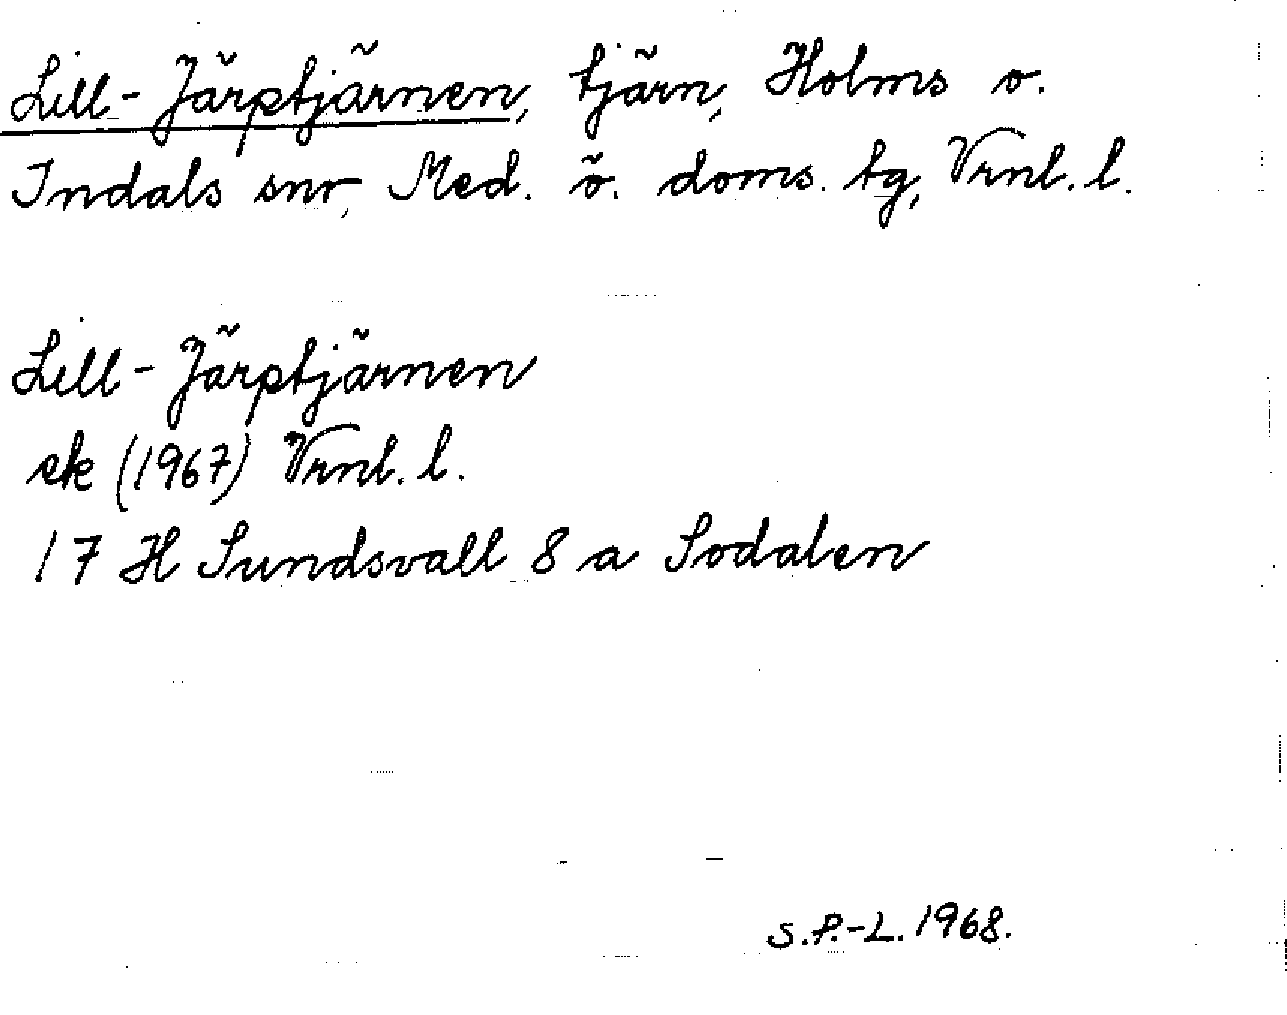 Lill-Järptjärnen, tjärn, Holms o.
Indals snr, Med. ö. doms. tg, Vrnl. l.
Lill-Järptjärnen
ek (1967) Vrnl. l.
17 H Sundsvall 8 a Sodalen
S.P.-L. 1968.